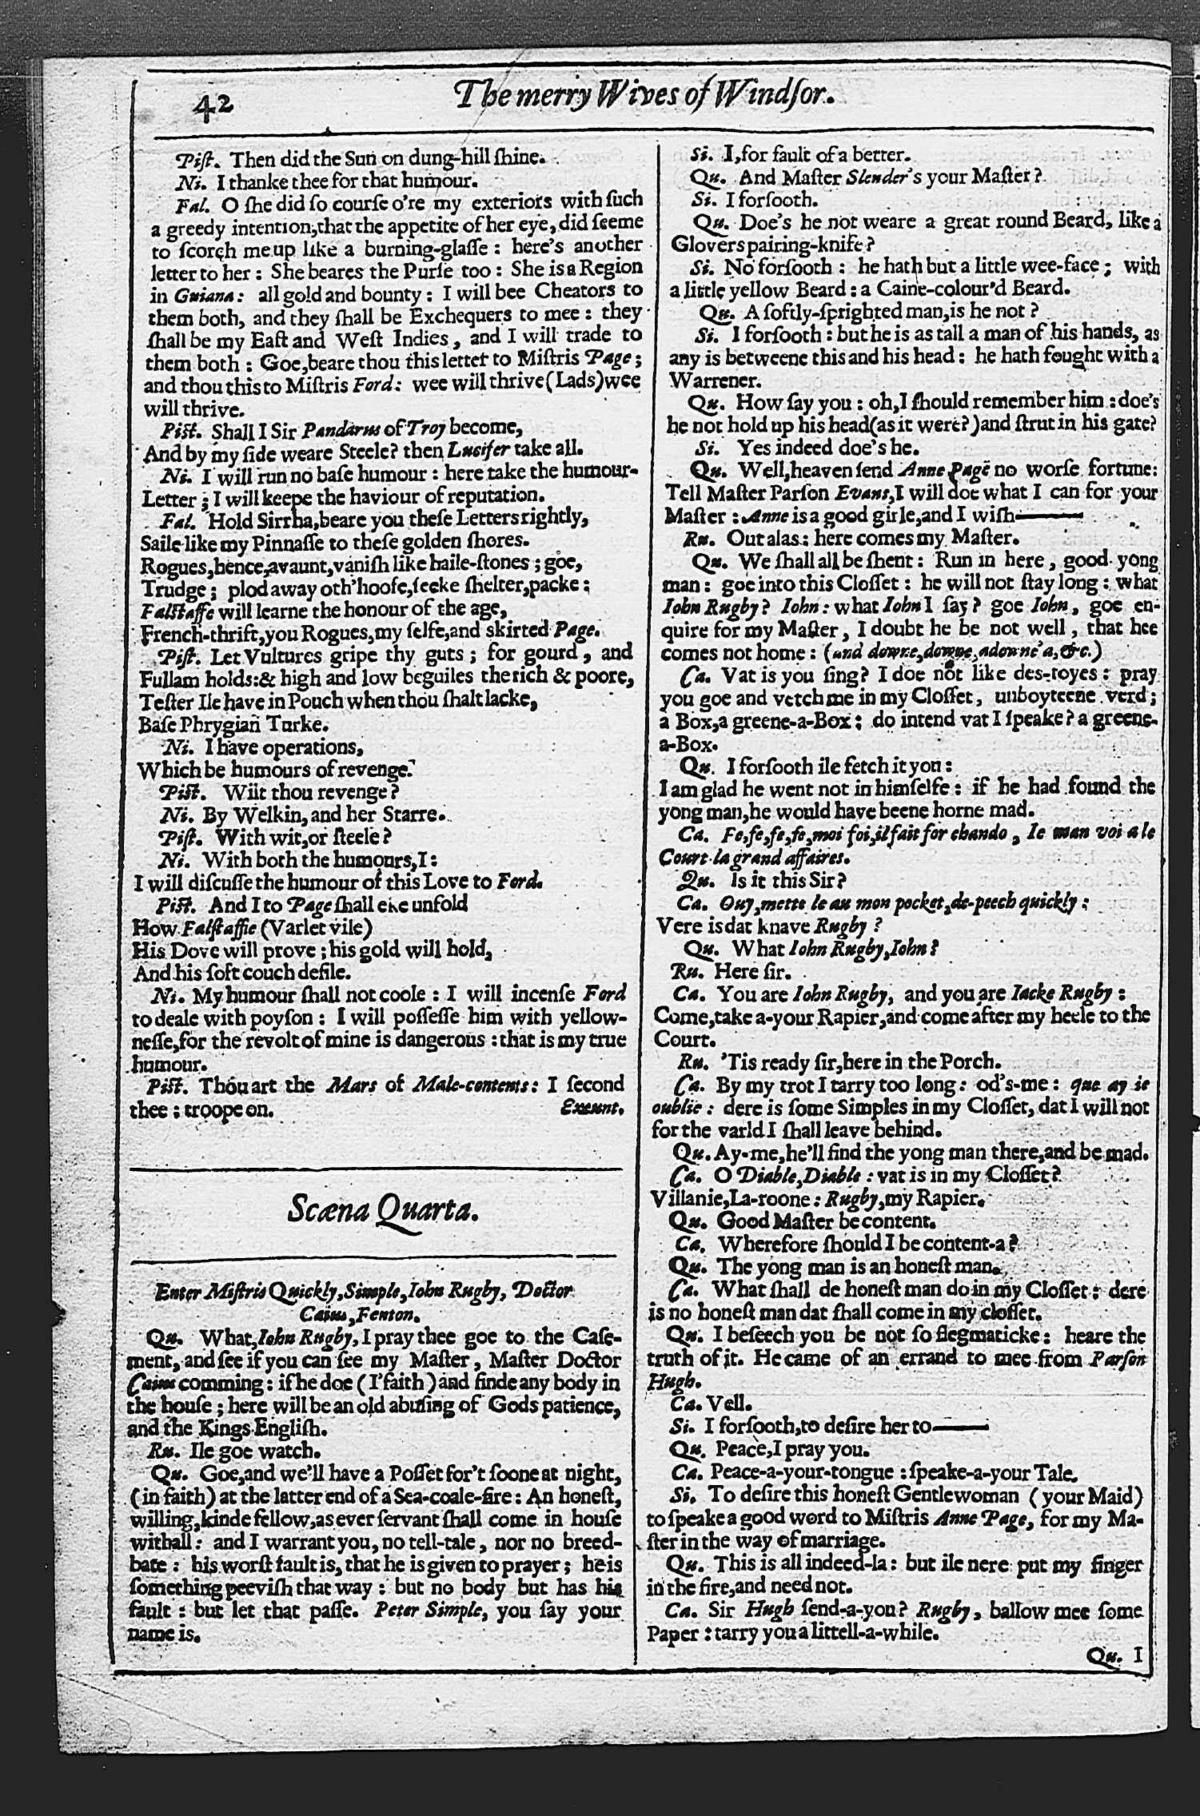 42
The merry Wives of Windſor.
Piſt. Then did the Sun on dung-hill ſhine.
Ni. I thanke thee for that humour.
Fal. O ſhe did ſo courſe o're my exteriors with ſuch
a greedy intention,that the appetite of her eye,did ſeeme
to ſcorch me up like a burning-glaſſe : here's another
letter to her : She beares the Purſe too : She is a Region
in Guiana: all gold and bounty : I will bee Cheators to
them both, and they ſhall be Exchequers to mee : they
ſhall be my Eaſt and Weſt Indies, and I will trade to
them both : Goe,beare thou this letter to Miſtris Page;
and thou this to Miſtris Ford: wee will thrive(Lads)wee
will thrive.
Piſt. Shall I Sir Pandarus of Troy become,
And by my ſide weare Steele? then Lucifer take all.
Ni. I will run no baſe humour : here take the humour-
Letter ; I will keepe the haviour of reputation.
Fal. Hold Sirrha,beare you theſe Letters rightly,
Saile like my Pinnaſſe to theſe golden ſhores.
Rogues,hence,avaunt,vaniſh like haile-ſtones ; goe,
Trudge ; plod away oth'hoofe,ſeeke ſhelter,packe :
Falſtaffe will learne the honour of the age,
French-thrift,you Rogues,my ſelfe,and skirted Page.
Piſt. Let Vultures gripe thy guts ; for gourd, and
Fullam holds:& high and low beguiles the rich & poore,
Teſter Ile have in Pouch when thou ſhalt lacke,
Baſe Phrygian Turke.
Ni. I have operations,
Which be humours of revenge.
Piſt. Wilt thou revenge?
Ni. By Welkin,and her Starre.
Piſt. With wit,or ſteele?
Ni. With both the humours,I:
I will diſcuſſe the humour of this Love to Ford.
Piſt. And I to Page ſhall eke unfold
How Falſtaffie (Varlet vile)
His Dove will prove ; his gold will hold,
And his ſoft couch defile.
Ni. My humour ſhall not coole : I will incenſe Ford
to deale with poyſon : I will poſſeſſe him with yellow-
neſſe,for the revolt of mine is dangerous : that is my true
humour.
Piſt. Thou art the Mars of Male-contents: I ſecond
thee ; troope on. Exeunt.
Scæna Quarta.
Enter Miſtris Quickly,Simple,Iohn Rugby, Doctor
Caius,Fenton.
Qu. What,Iohn Rugby,I pray thee goe to the Caſe-
ment, and ſee if you can ſee my Maſter, Maſter Doctor
Caius comming : if he doe (I'faith) and finde any body in
the houſe ; here will be an old abuſing of Gods patience,
and the Kings Engliſh.
Ru. Ile goe watch.
Qu. Goe,and we'll have a Poſſet for't ſoone at night,
(in faith) at the latter end of a Sea-coale-fire : An honeſt,
willing,kinde fellow,as ever ſervant ſhall come in houſe
withall: and I warrant you, no tell-tale, nor no breed-
bate : his worſt fault is, that he is given to prayer ; he is
ſomething peeviſh that way : but no body but has his
fault : but let that paſſe. Peter Simple, you ſay your
name is.
Si. I,for fault of a better.
Qu. And Maſter Slender's your Maſter?
Si. I forſooth.
Qu. Doe's he not weare a great round Beard, like a
Glovers pairing-knife?
Si. No forſooth : he hath but a little wee-face ; with
a little yellow Beard : a Caine-colour'd Beard.
Qu. A ſoftly-ſprighted man,is he not?
Si. I forſooth : but he is as tall a man of his hands, as
any is betweene this and his head : he hath fought with a
Warrener.
Qu. How ſay you : oh,I ſhould remember him : doe's
he not hold up his head(as it were?)and ſtrut in his gate?
Si. Yes indeed doe's he.
Qu. Well,heaven ſend Anne Page no worſe fortune:
Tell Maſter Parſon Evans,I will doe what I can for your
Maſter : Anne is a good girle,and I wiſh———
Ru. Out alas : here comes my Maſter.
Qu. We ſhall all be ſhent : Run in here, good yong
man : goe into this Cloſſet : he will not ſtay long : what
Iohn Rugby? Iohn: what Iohn I ſay? goe Iohn, goe en-
quire for my Maſter, I doubt he be not well, that hee
comes not home : (and downe,downe,adowne'a,&c.)
Ca. Vat is you ſing? I doe not like des-toyes : pray
you goe and vetch me in my Cloſſet, unboyteene verd ;
a Box,a greene-a-Box : do intend vat I ſpeake? a greene-
a-Box.
Qu. I forſooth ile fetch it you :
I am glad he went not in himſelfe : if he had found the
yong man,he would have beene horne mad.
Ca. Fe,fe,fe,fe,moi foi,il fait for ehando, Ie man voi a le
Court la grand affaires.
Qu. Is it this Sir?
Ca. Ouy,mette le au mon pocket,de-peech quickly :
Vere is dat knave Rugby?
Qu. What Iohn Rugby,Iohn?
Ru. Here ſir.
Ca. You are Iohn Rugby, and you are Iacke Rugby :
Come,take a-your Rapier,and come after my heele to the
Court.
Ru. 'Tis ready ſir,here in the Porch.
Ca. By my trot I tarry too long : od's-me : que ay ie
oublie : dere is ſome Simples in my Cloſſet, dat I will not
for the varld I ſhall leave behind.
Qu. Ay-me,he'll find the yong man there,and be mad.
Ca. O Diable,Diable : vat is in my Cloſſet?
Villanie,La-roone : Rugby,my Rapier.
Qu. Good Maſter be content.
Ca. Wherefore ſhould I be content-a?
Qu. The yong man is an honeſt man.
Ca. What ſhall de honeſt man do in my Cloſſet : dere
is no honeſt man dat ſhall come in my cloſſet.
Qu. I beſeech you be not ſo flegmaticke : heare the
truth of it. He came of an errand to mee from Parſon
Hugh.
Ca. Vell.
Si. I forſooth,to deſire her to———
Qu. Peace,I pray you.
Ca. Peace-a-your-tongue : ſpeake-a-your Tale.
Si. To deſire this honeſt Gentlewoman (your Maid)
to ſpeake a good word to Miſtris Anne Page, for my Ma-
ſter in the way of marriage.
Qu. This is all indeed-la : but ile nere put my finger
in the fire,and need not.
Ca. Sir Hugh ſend-a-you? Rugby, ballow mee ſome
Paper : tarry you a littell-a-while.
Qu. I